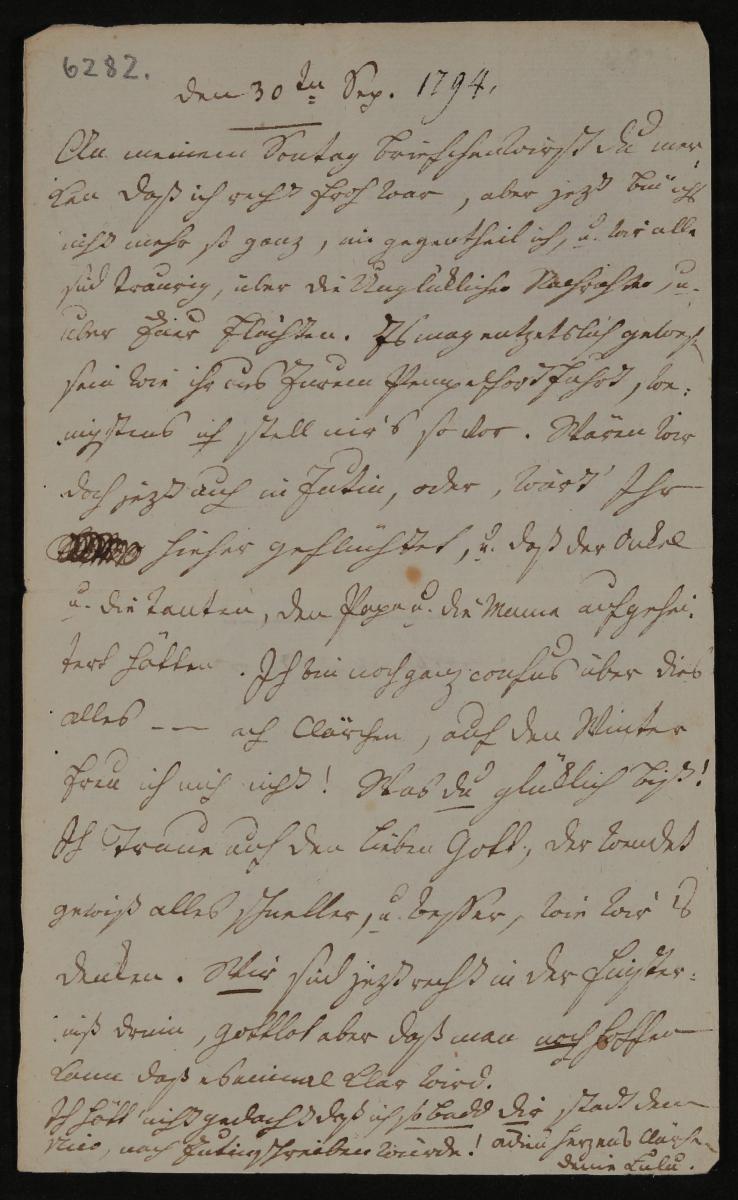 6282.
den 30tn Sep. 1794.
An meinem Sontag briefchen wirst du mer
ken daß ich recht froh war, aber jezt bin ichs
nicht mehr so ganz, im gegentheil ich, u. wir alle
sind traurig, über die Unglükliche Nachrichten, u.
über Euer flüchten. Es mag entzetslich gewesen
sein wie ihr aus Eurem Pempelfort fuhrt, we-
nigstens ich stell mir's so vor. Wären wir
doch jezt auch in Eutin, oder, wärt Ihr
hieher geflüchtet, u. daß der Onkel
u. die Tanten, den Papa u. die Mama aufgehei-
tert hätten. Ich bin noch ganz confus über dies
alles -- ach Clärchen, auf den Winter
freu ich mich nicht! Was du glüklich bist!
Ich Traue auf den lieben Gott, der wendet
gewiß alles schneller, u. besser, wie wir es
denken. Wir sind jezt recht in der Finster-
niß drinn, gottlob aber daß man noch hoffen
kann daß es einmal klar wird.
Ich hätt nicht gedacht daß ich so bald dir statt dem
, nach Eutin schreiben würde! adieu herzens Clärchen
deine Lulu.